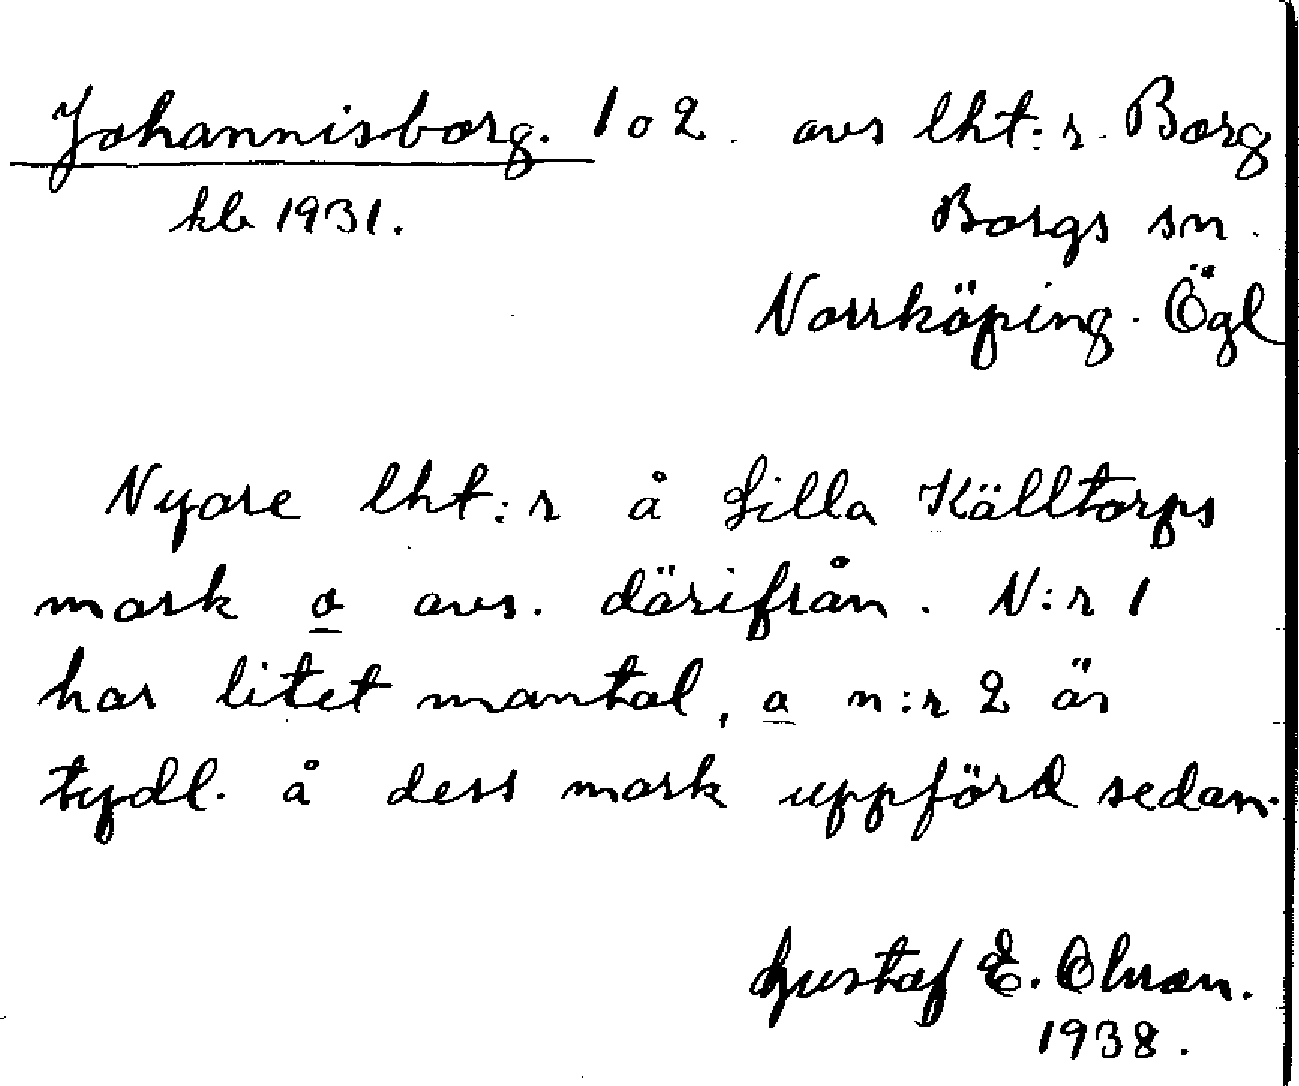 Johannisborg. 1 o 2. avs lht:r. Borg
kb 1931. Borgs sn.
Norrköping. Ögl
Nyare lht:r å Lilla Källtorps
mark o avs. därifrån. N:r 1
har litet mantal, o n:r 2 är
tydl. å dess mark uppförd sedan.
Gustaf E. Olsson.
1938.